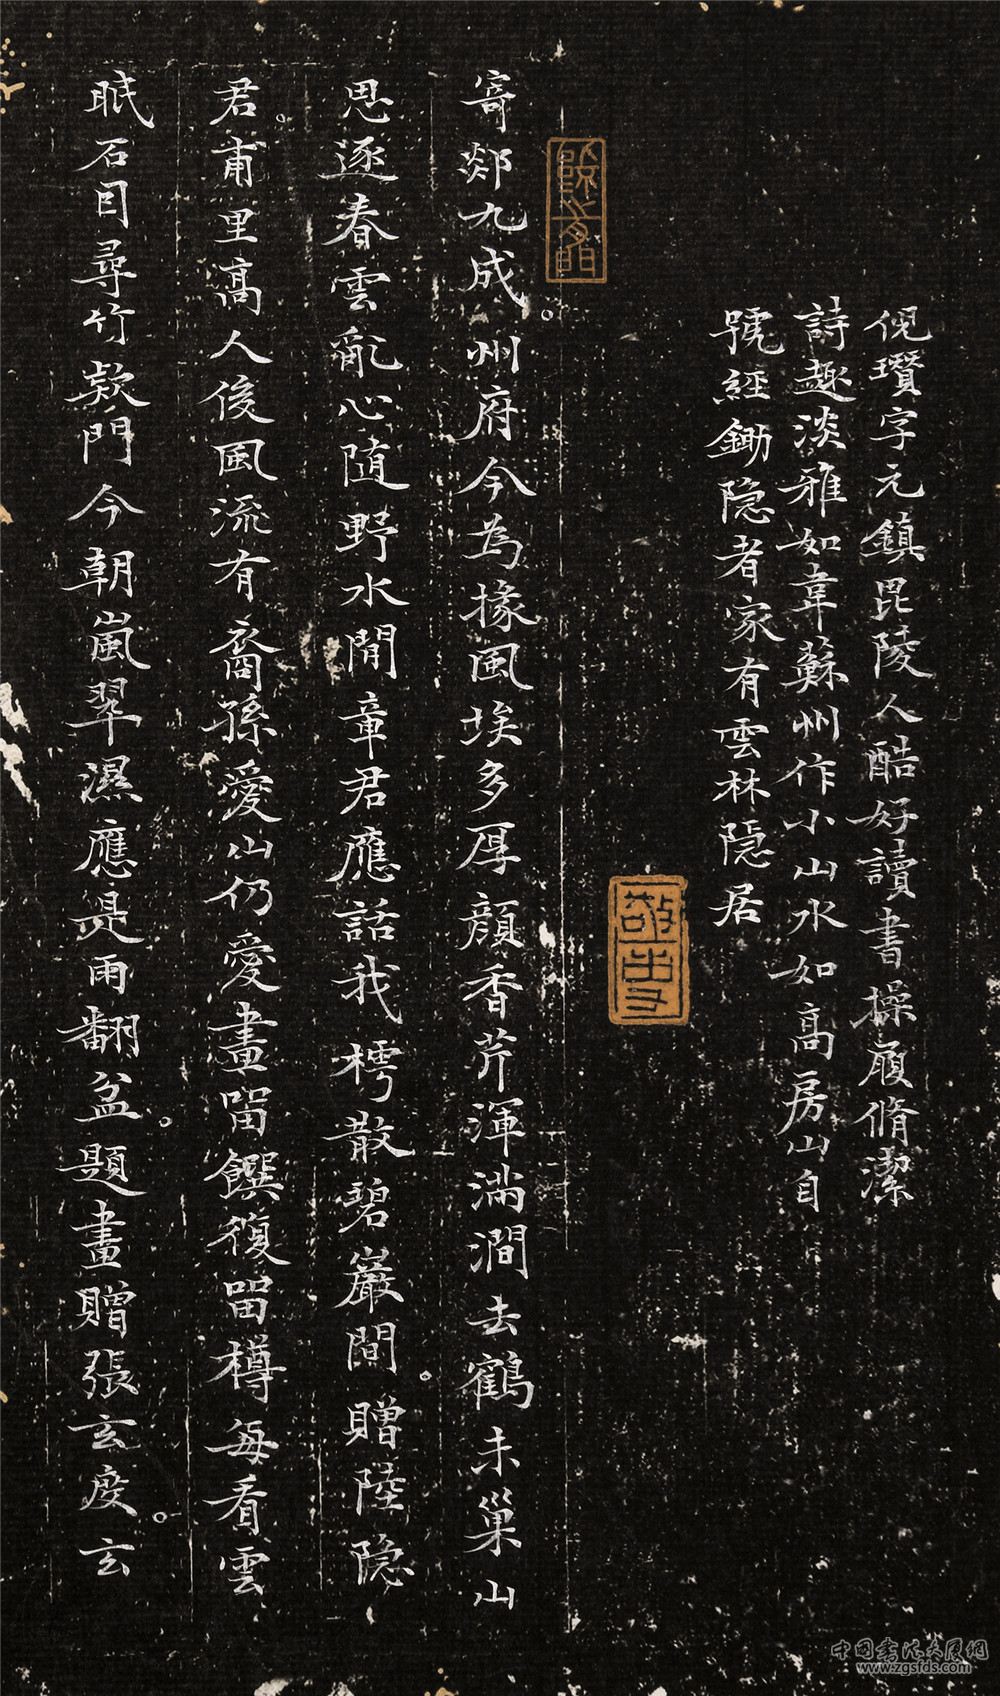 倪瓚字元鎮毘陵人酷好讀書操履脩潔
詩趣淡雅如韋蘇州作小山水如高房山自
號經鋤隐者家有雲林隐居
寄郯九成。州府今為掾風埃多厚顔香芹渾滿澗去鶴未巢山
思逐春雲亂心随野水閒章君應話我樗散碧巖間。贈陸隐
君。甫里高人後風流有裔孫愛山仍愛畫留饌復留樽每看雲
眂石目尋竹款門今朝嵐翠濕應是雨翻盆。題畫贈張玄度。玄
中国书法大厦网
www.zgsfds.com